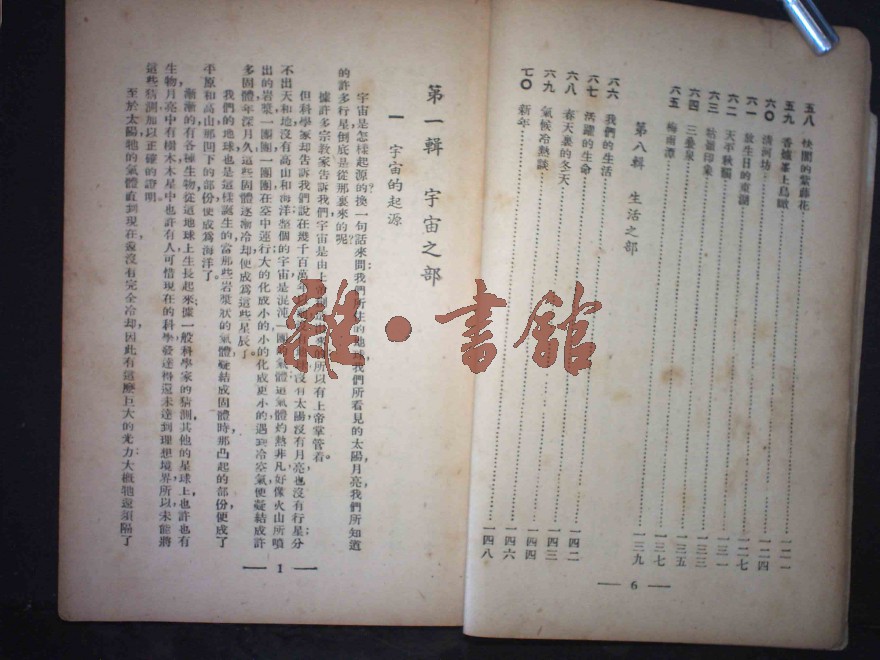 五八 快閣的紫藤花 一二一
五九 香爐峯上鳥瞰
六〇 清河坊 一二四
六一 放生日的東湖 一二七
六二 天平秋獵 一三一
六三 牯嶺印象 一三三
六四 三疊泉 一三五
六五 梅雨潭 一三七
第八輯 生活之部 一三九
六六 我們的生活
六七 活躍的生命 一四二
六八 春天裏的冬天 一四三
六九 氣候冷熱談 一四四
七〇 新年 一四六
一四八
6
第一輯 宇宙之部
一 宇宙的起源
宇宙是怎樣起源的?換一句話來問:我們所住的地球,我們所看見的太陽、月亮,我們所知道
的許多行星,倒底是從那裏來的呢?
據許多宗教家告訴我們,宇宙是由上帝所以有上帝掌管着。
但科學家却告訴我們說:在幾千百萬年沒有太陽,沒有月亮,也沒有行星;分
不出天和地,沒有高山和海洋,整個的宇宙是混沌一團氣體,這氣體灼熱非凡,好像火山所噴
出的岩漿,一團一團在空中運行,大的化成小的,小的化成更小的,遇到冷空氣,便凝結成許
多固體,年深月久,這些固體逐漸冷却,便成爲這些星辰了。
我們的地球,也是這樣誕生的,當那些岩漿狀的氣體凝結成固體時,那凸起的部份便成了
平原和高山,那凹下的部份便成爲海洋了。
漸漸的,有各種生物從這地球上生長起來,據一般科學家的猜測,其他的星球上也許也有
生物,月亮中有樹木,木星中也許有人,可惜現在的科學發達得還未達到理想境界,所以未能將
這些猜測加以正確的證明。
至於太陽,牠的氣體直到現在還沒有完全冷却,因此有這麼巨大的光力,大概牠還須隔了
1
雜·書館